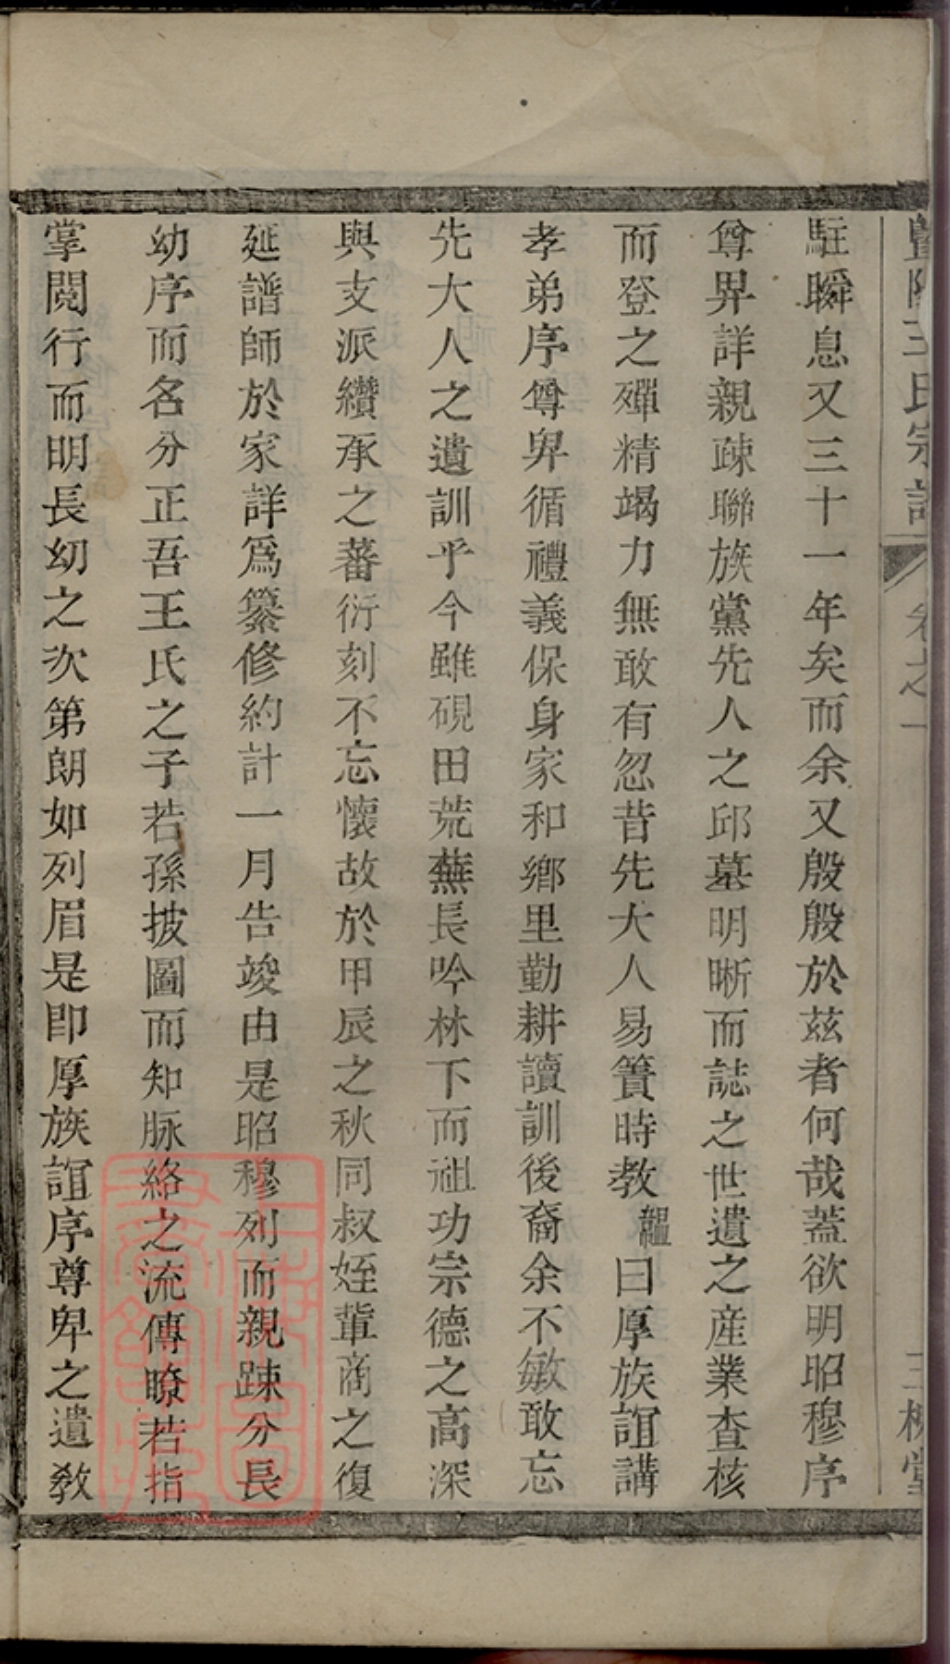 暨陽王氏宗譜 卷之一 三槐堂
駐瞬息又三十一年矣而余又殷殷於茲者何哉蓋欲明昭穆序
尊畀詳親疎聯族黨先人之邱墓明晰而誌之世遺之産業查核
而登之殫精竭力無敢有忽昔先大人易簀時教韞曰厚族誼講
孝弟序尊畀循禮義保身家和鄉里勤耕讀訓後裔余不敏敢忘
先大人之遺訓乎今雖硯田荒蕪長吟林下而祖功宗德之高深
與支派纘承之蕃衍刻不忘懷故於甲辰之秋同叔姪輩商之復
延譜師於家詳爲纂修約計一月告竣由是昭穆列而親踈分長
幼序而名分正吾王氏之子若孫披圖而知脉絡之流傳瞭若指
掌閱行而明長幼之次第朗如列眉是即厚族誼序尊卑之遺教